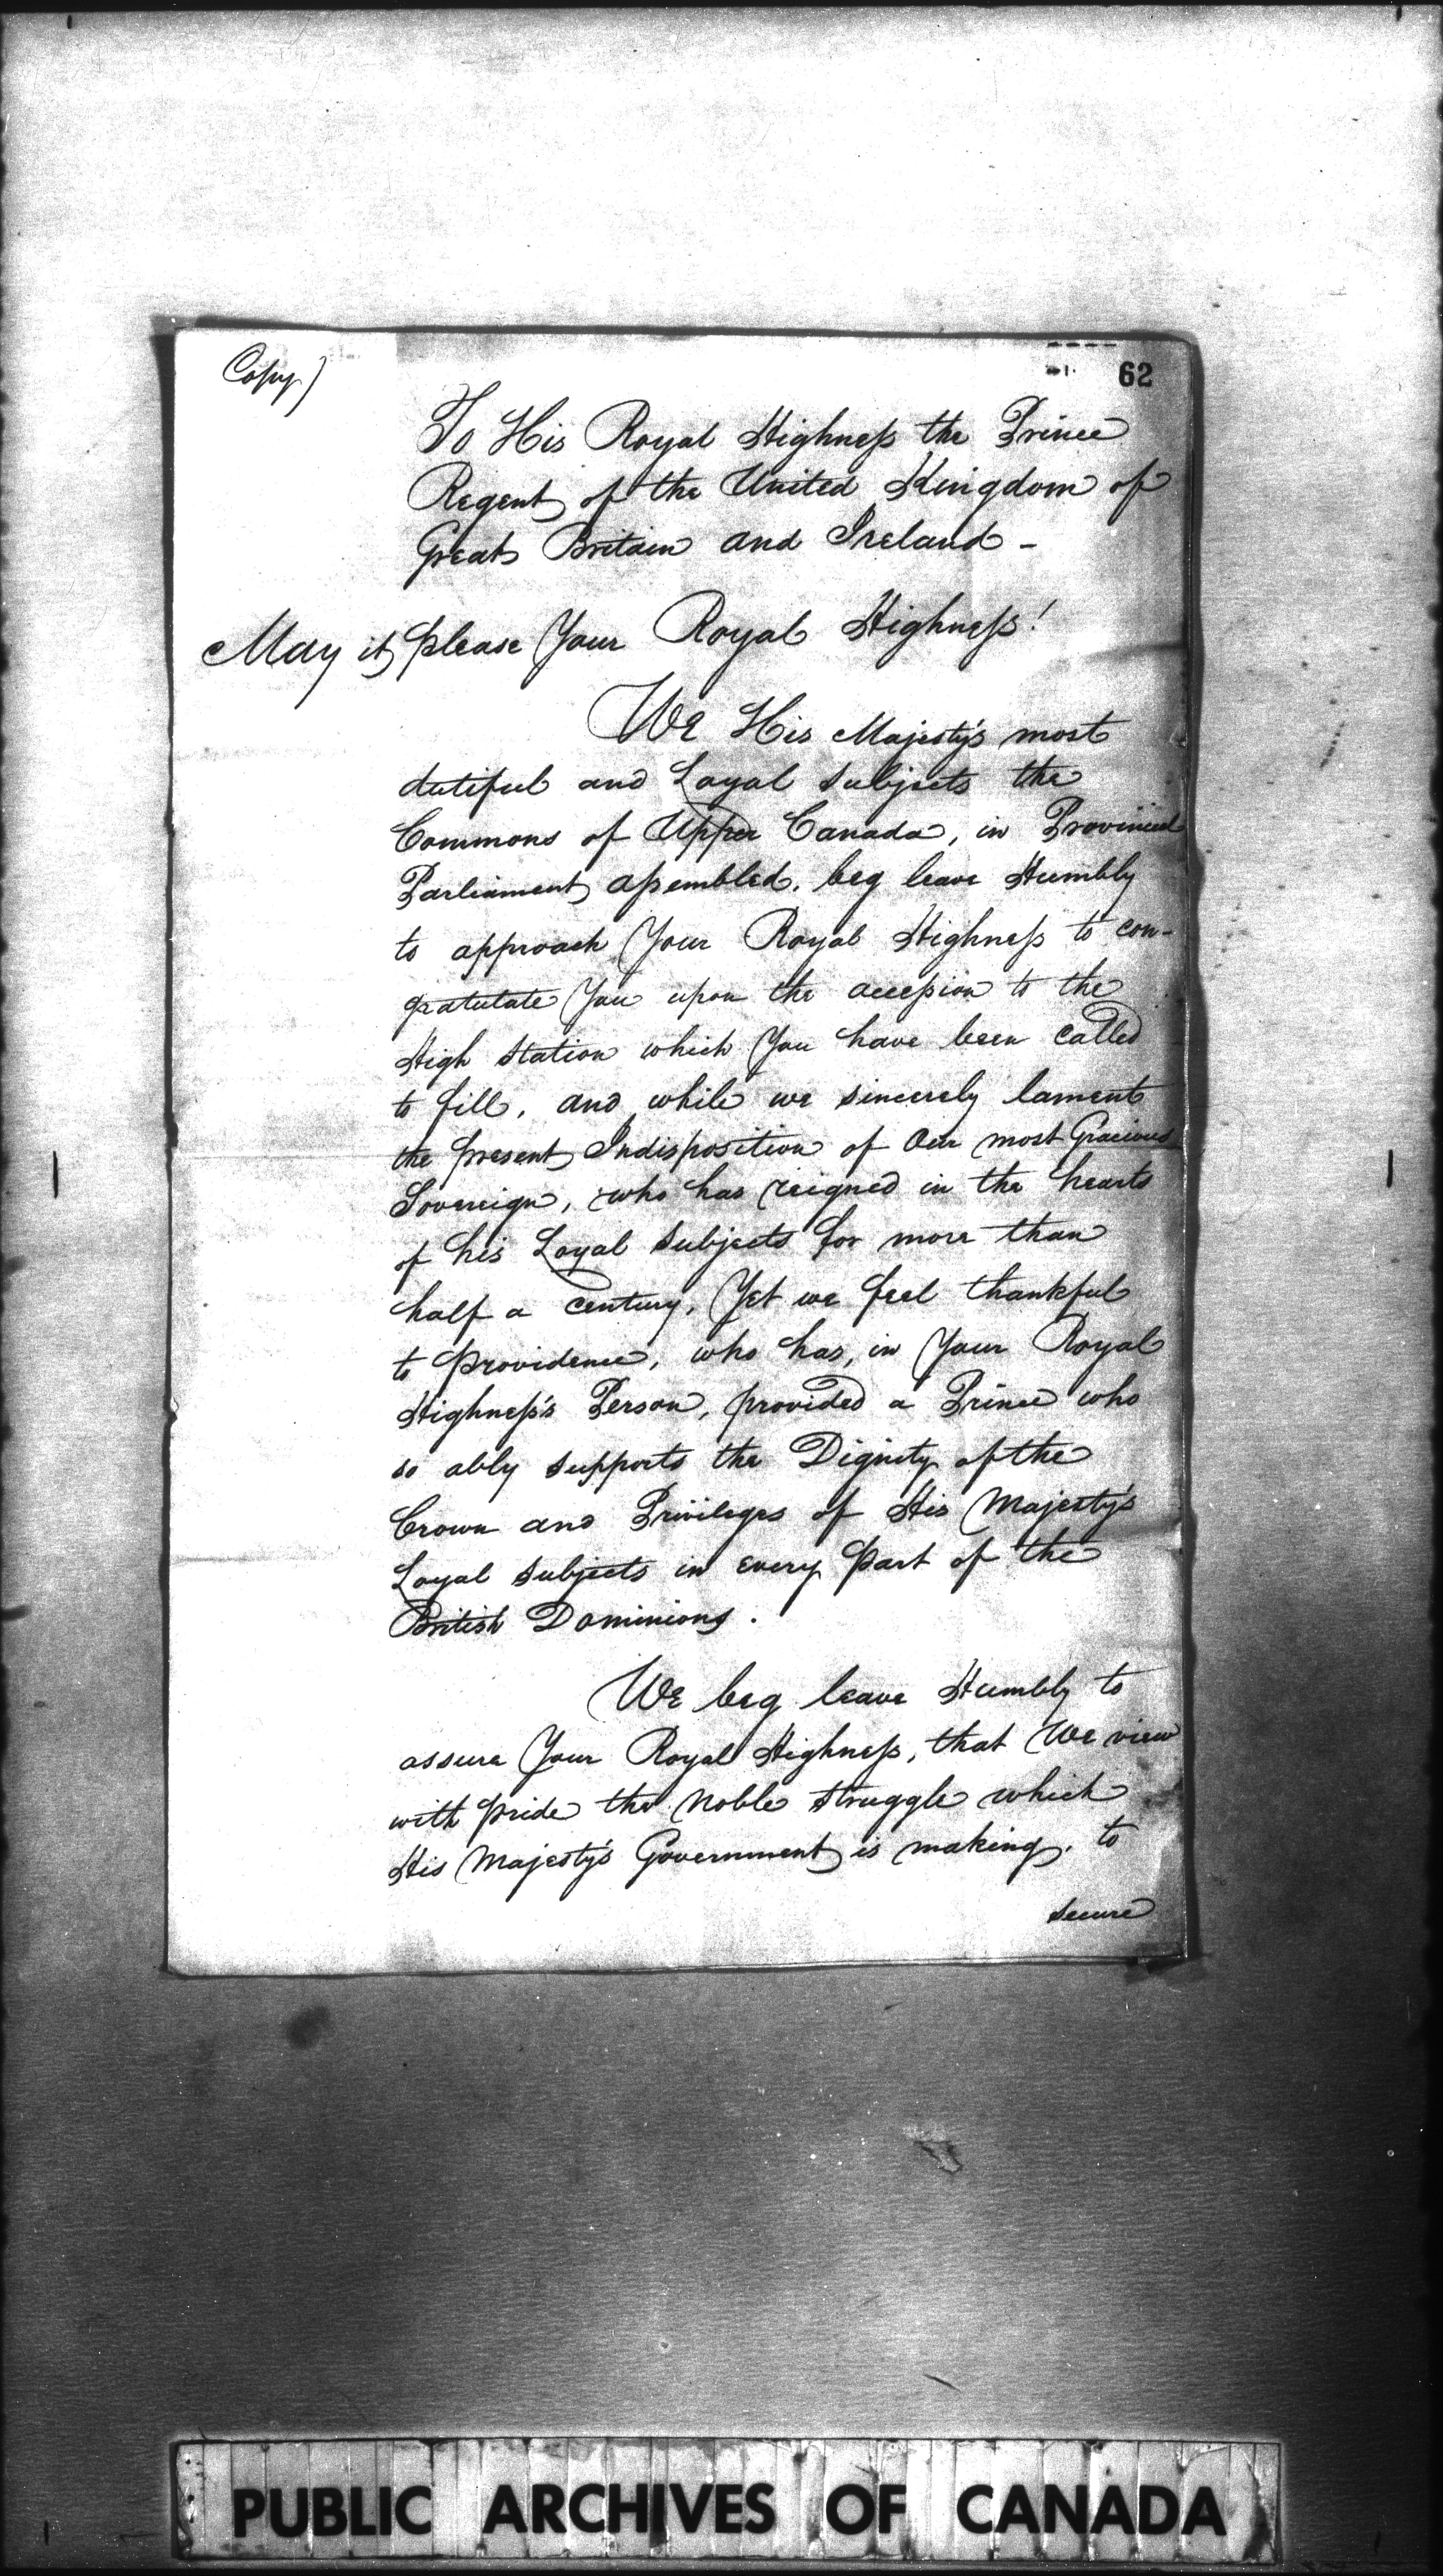 Copy)
62
To His Royal Highneſs the Prince
Regent of the United Kingdom of
Great Britain and Ireland -
May it please Your Royal Highneſs!
We His Majesty's most
dutiful and Loyal Subjects the
Commons of Upper Canada, in Provincial
Parliament aſsembled, beg leave Humbly
to approach Your Royal Highneſs to con-
gratulate You upon the acceſsion to the
High Station which You have been called
to fill, and while we sincerely lament
the present Indisposition of Our most Gracious
Sovereign, who has reigned in the hearts
of his Loyal Subjects for more than
half a Century, Yet we feel thankful
to providence, who has, in Your Royal
Highneſs's Person, provided a Prince who
so ably supports the Dignity of the
Crown and Privileges of His Majesty's
Loyal Subjects in every part of the
British Dominions.
We beg leave Humbly to
assure Your Royal Highneſs, that We view
with pride the Noble Struggle which
His Majesty's Government is making, to
secure
PUBLIC ARCHIVES OF CANADA